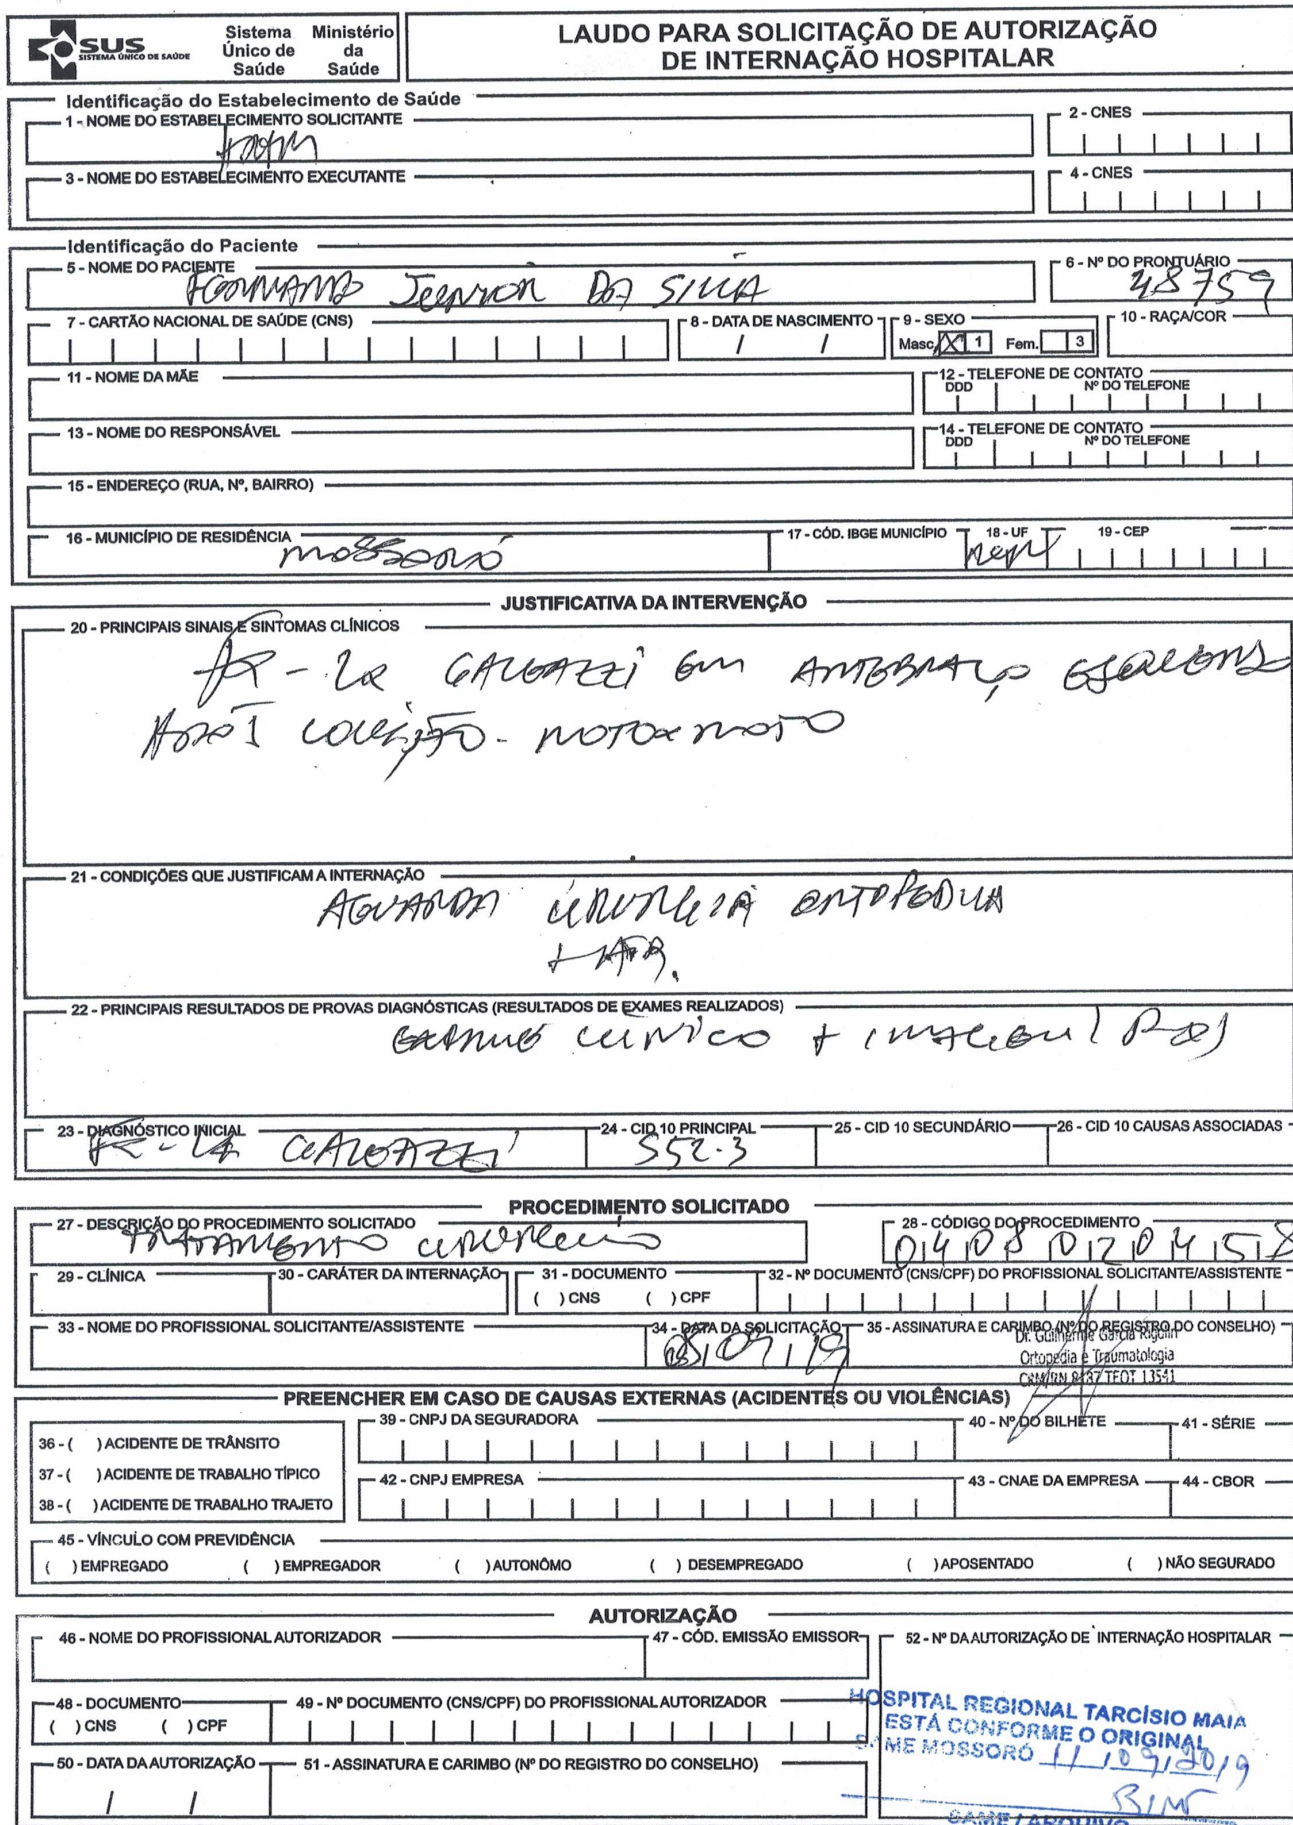 SUS
SISTEMA ÚNICO DE SAÚDE
Sistema Único de Saúde
Ministério da Saúde
LAUDO PARA SOLICITAÇÃO DE AUTORIZAÇÃO
DE INTERNAÇÃO HOSPITALAR
Identificação do Estabelecimento de Saúde
1 - NOME DO ESTABELECIMENTO SOLICITANTE
2 - CNES
3 - NOME DO ESTABELECIMENTO EXECUTANTE
4 - CNES
Identificação do Paciente
5 - NOME DO PACIENTE
6 - Nº DO PRONTUÁRIO
JUNIOR DA SILVA
48759
7 - CARTÃO NACIONAL DE SAÚDE (CNS)
8 - DATA DE NASCIMENTO
9 - SEXO
10 - RAÇA/COR
/ /
Masc. X 1 Fem. 3
11 - NOME DA MÃE
12 - TELEFONE DE CONTATO
DDD Nº DO TELEFONE
13 - NOME DO RESPONSÁVEL
14 - TELEFONE DE CONTATO
DDD Nº DO TELEFONE
15 - ENDEREÇO (RUA, Nº, BAIRRO)
16 - MUNICÍPIO DE RESIDÊNCIA
17 - CÓD. IBGE MUNICÍPIO
18 - UF
19 - CEP
MOSSORÓ
JUSTIFICATIVA DA INTERVENÇÃO
20 - PRINCIPAIS SINAIS E SINTOMAS CLÍNICOS
GALEAZZI EM ANTEBRAÇO ESQUERDO
APÓS COLISÃO - MOTO X MOTO
21 - CONDIÇÕES QUE JUSTIFICAM A INTERNAÇÃO
AGUARDA CIRURGIA ORTOPEDICA
22 - PRINCIPAIS RESULTADOS DE PROVAS DIAGNÓSTICAS (RESULTADOS DE EXAMES REALIZADOS)
EXAME CLÍNICO + IMAGEM (RX)
23 - DIAGNÓSTICO INICIAL
24 - CID 10 PRINCIPAL
25 - CID 10 SECUNDÁRIO
26 - CID 10 CAUSAS ASSOCIADAS
GALEAZZI
S52.3
PROCEDIMENTO SOLICITADO
27 - DESCRIÇÃO DO PROCEDIMENTO SOLICITADO
28 - CÓDIGO DO PROCEDIMENTO
TRATAMENTO CIRURGICO
0408020458
29 - CLÍNICA
30 - CARÁTER DA INTERNAÇÃO
31 - DOCUMENTO
32 - Nº DOCUMENTO (CNS/CPF) DO PROFISSIONAL SOLICITANTE/ASSISTENTE
( ) CNS ( ) CPF
33 - NOME DO PROFISSIONAL SOLICITANTE/ASSISTENTE
34 - DATA DA SOLICITAÇÃO
35 - ASSINATURA E CARIMBO (Nº DO REGISTRO DO CONSELHO)
08/09/19
Dr. Guilherme Garcia Rigolin
Ortopedia e Traumatologia
CRM/RN 8437 TEOT 13541
PREENCHER EM CASO DE CAUSAS EXTERNAS (ACIDENTES OU VIOLÊNCIAS)
36 - ( ) ACIDENTE DE TRÂNSITO
37 - ( ) ACIDENTE DE TRABALHO TÍPICO
38 - ( ) ACIDENTE DE TRABALHO TRAJETO
39 - CNPJ DA SEGURADORA
40 - Nº DO BILHETE
41 - SÉRIE
42 - CNPJ EMPRESA
43 - CNAE DA EMPRESA
44 - CBOR
45 - VÍNCULO COM PREVIDÊNCIA
( ) EMPREGADO ( ) EMPREGADOR ( ) AUTONÔMO ( ) DESEMPREGADO ( ) APOSENTADO ( ) NÃO SEGURADO
AUTORIZAÇÃO
46 - NOME DO PROFISSIONAL AUTORIZADOR
47 - CÓD. EMISSÃO EMISSOR
52 - Nº DA AUTORIZAÇÃO DE INTERNAÇÃO HOSPITALAR
48 - DOCUMENTO
49 - Nº DOCUMENTO (CNS/CPF) DO PROFISSIONAL AUTORIZADOR
( ) CNS ( ) CPF
50 - DATA DA AUTORIZAÇÃO
51 - ASSINATURA E CARIMBO (Nº DO REGISTRO DO CONSELHO)
/ /
HOSPITAL REGIONAL TARCÍSIO MAIA
ESTÁ CONFORME O ORIGINAL
SAME MOSSORÓ 11/09/2019
SAME / ARQUIVO